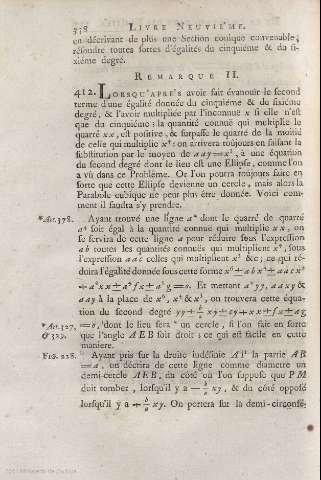 318 LIVRE NEUVIÈME.
en décrivant de plus une Section conique convenable,
résoudre toutes sortes d'égalités du cinquième & du si-
xième degré.
REMARQUE II.
412. LORSQU'APRÈS avoir fait évanouir le second
terme d'une égalité donnée du cinquième & du sixième
degré, & l'avoir multipliée par l'inconnue x si elle n'est
que du cinquième; la quantité connue qui multiplie le
quarré xx, est positive, & surpasse le quarré de la moitié
de celle qui multiplie x³: on arrivera toujours en faisant la
substitution par le moyen de aay=x³, à une équation
du second degré dont le lieu est une Ellipse, comme l'on
a vû dans ce Problème. Or l'on pourra toujours faire en
sorte que cette Ellipse devienne un cercle, mais alors la
Parabole cubique ne peut plus être donnée. Voici com-
ment il faudra s'y prendre.
*Art. 378. Ayant trouvé une ligne a* dont le quarré de quarré
a⁴ soit égal à la quantité connue qui multiplie xx, on
se servira de cette ligne a pour réduire sous l'expression
ab toutes les quantités connues qui multiplient x⁴, sous
l'expression aac celles qui multiplient x³ &c; ce qui ré-
duira l'égalité donnée sous cette forme x⁶±abx⁴±aacx³
+a⁴xx±a⁴fx±a⁵g=0. Et mettant a⁴yy, aaxy &
aay à la place de x⁶, x⁴ & x³, on trouvera cette équa-
tion du second degré yy±b/a xy±cy+xx±fx±ag
*Art. 327. =0, dont le lieu sera* un cercle, si l'on fait en sorte
& 329. que l'angle AEB soit droit: ce qui est facile en cette
manière.
FIG. 228. Ayant pris sur la droite indéfinie AP la partie AB
=a, on décrira de cette ligne comme diametre un
demi-cercle AEB, du côté où l'on suppose que PM
doit tomber, lorsqu'il y a −b/a xy, & du côté opposé
lorsqu'il y a +b/a xy. On portera sur la demi-circonfé-